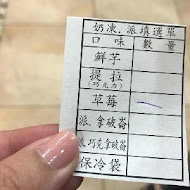 奶凍.派填選單
口味 數量
鮮芋
提拉
(巧克力)
草莓
派.拿破崙
派.巧克拿破崙
保冷袋